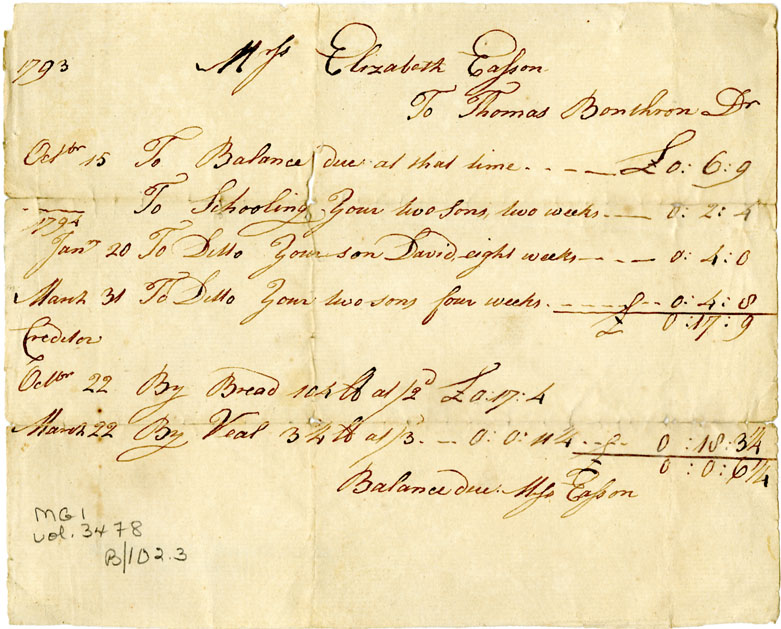 1793 Mrss Elizabeth Easson
To Thomas Bonthron Dr
Octbr 15 To Balance due at that time £ 0: 6: 9
To Schooling Your two sons two weeks 0: 2: 4
1794
Jany 20 To Ditto Your son David eight weeks 0: 4: 0
March 31 To Ditto Your two sons four weeks 0: 4: 8
£ 0: 17: 9
Creditor
Octbr 22 By Bread 104 lb at /2d £0: 17: 4
March 22 By Veal 3¾ lb at /3. 0: 0: 11¼ 0: 18: 3¼
0: 0: 6¼
Balance due Mrss Easson
MG1
vol. 3478
B/102.3